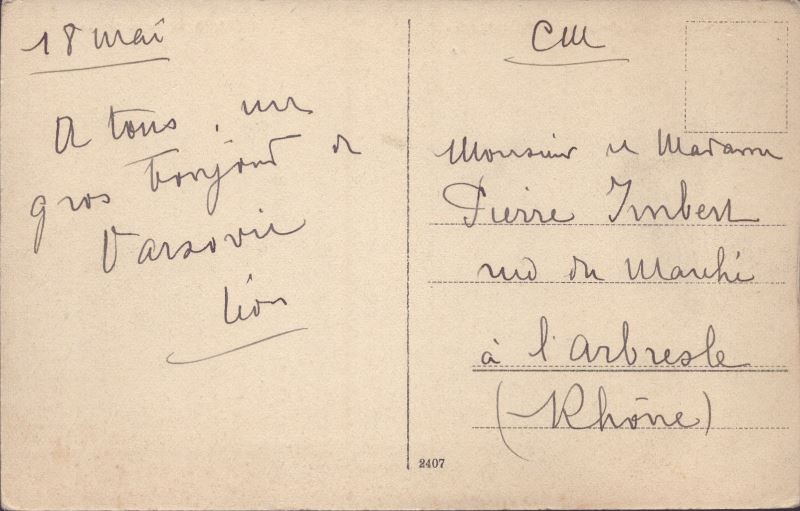 18 mai
A tous, un
gros bonjour de
Varsovie
Léon
CM
Monsieur et Madame
Pierre Imbert
rue du Marché
à l'Arbresle
(Rhône)
2407